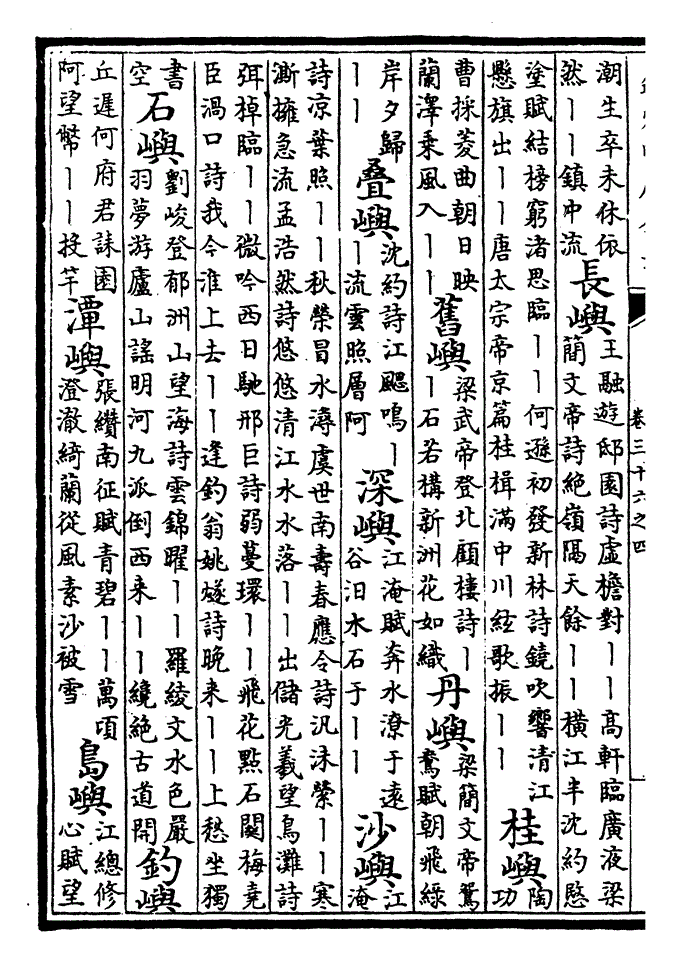 卷三十六之四
潮生卒未休依
然丨丨鎮中流
長嶼
王融遊邸園詩虛檐對丨丨高軒臨廣夜梁
簡文帝詩絕嶺隔天餘丨丨橫江半沈約愍
塗賦結榜窮渚思臨丨丨何遜初發新林詩鐃吹響清江
懸旗出丨丨唐太宗帝京篇桂楫滿中川絃歌振丨丨
桂嶼
陶
功
曹採菱曲朝日映
蘭澤乘風入丨丨
舊嶼
梁武帝登北顧樓詩丨
丨石若構新洲花如織
丹嶼
梁簡文帝鴛
鴦賦朝飛綠
岸夕歸
丨丨
疊嶼
沈約詩江颸鳴丨
丨流雲照層阿
深嶼
江淹賦奔水潦于遠
谷汩木石于丨丨
沙嶼
江
淹
詩凉葉照丨丨秋榮冒水潯虞世南壽春應令詩汎沫縈丨丨寒
澌擁急流孟浩然詩悠悠清江水水落丨丨出儲光羲望鳥灘詩
弭棹臨丨丨微吟西日馳邢巨詩弱蔓環丨丨飛花點石關梅堯
臣渦口詩我今淮上去丨丨逢釣翁姚燧詩晚来丨丨上愁坐獨
書
空
石嶼
劉峻登郁洲山望海詩雲錦曜丨丨羅綾文水色嚴
羽夢游廬山謠明河九派倒西来丨丨繞絕古道開
釣嶼
丘遲何府君誄園
阿望幣丨丨投竿
潭嶼
張纘南征賦青碧丨丨萬頃
澄澈綺蘭從風素沙被雪
島嶼
江總修
心賦望